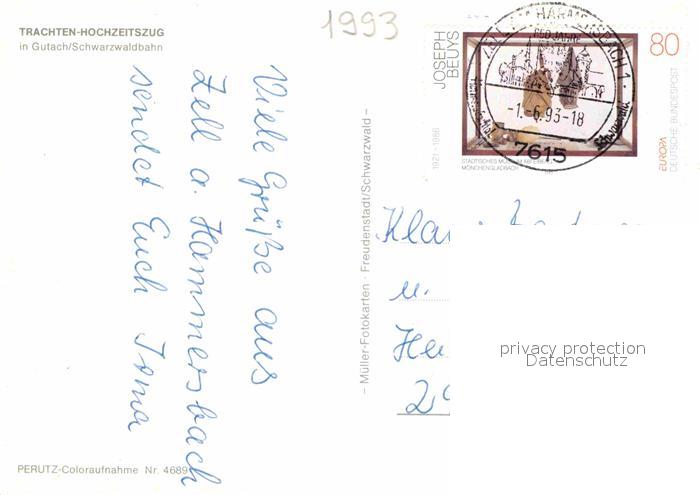 TRACHTEN-HOCHZEITSZUG
in Gutach/Schwarzwaldbahn
1993
Viele Grüße aus
Zell a. Hammersbach
sendet Euch Irma
PERUTZ-Coloraufnahme Nr. 4689
– Müller-Fotokarten · Freudenstadt/Schwarzwald –
JOSEPH
BEUYS
1921-1986
80
STÄDTISCHES MUSEUM ABTEIBERG
MÖNCHENGLADBACH
EUROPA
DEUTSCHE BUNDESPOST
HARMERSBACH 1
-1.-6.93-18
7615
u.
privacy protection
Datenschutz